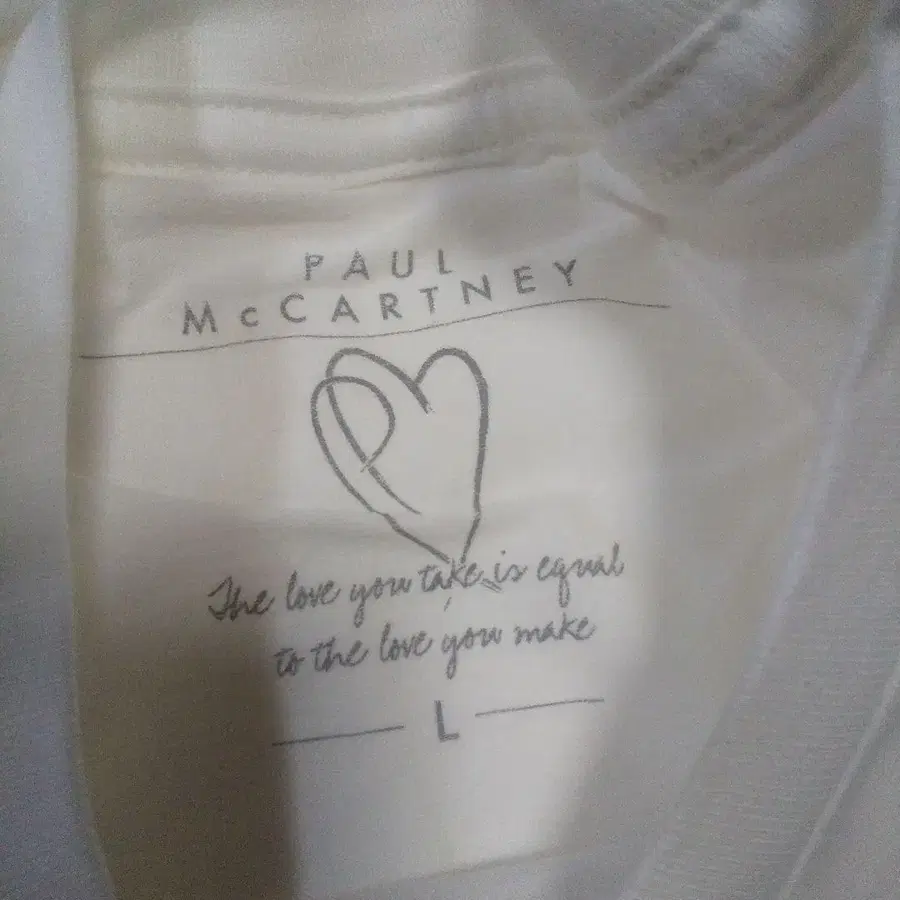 PAUL
McCARTNEY
The love you take is equal
to the love you make
L